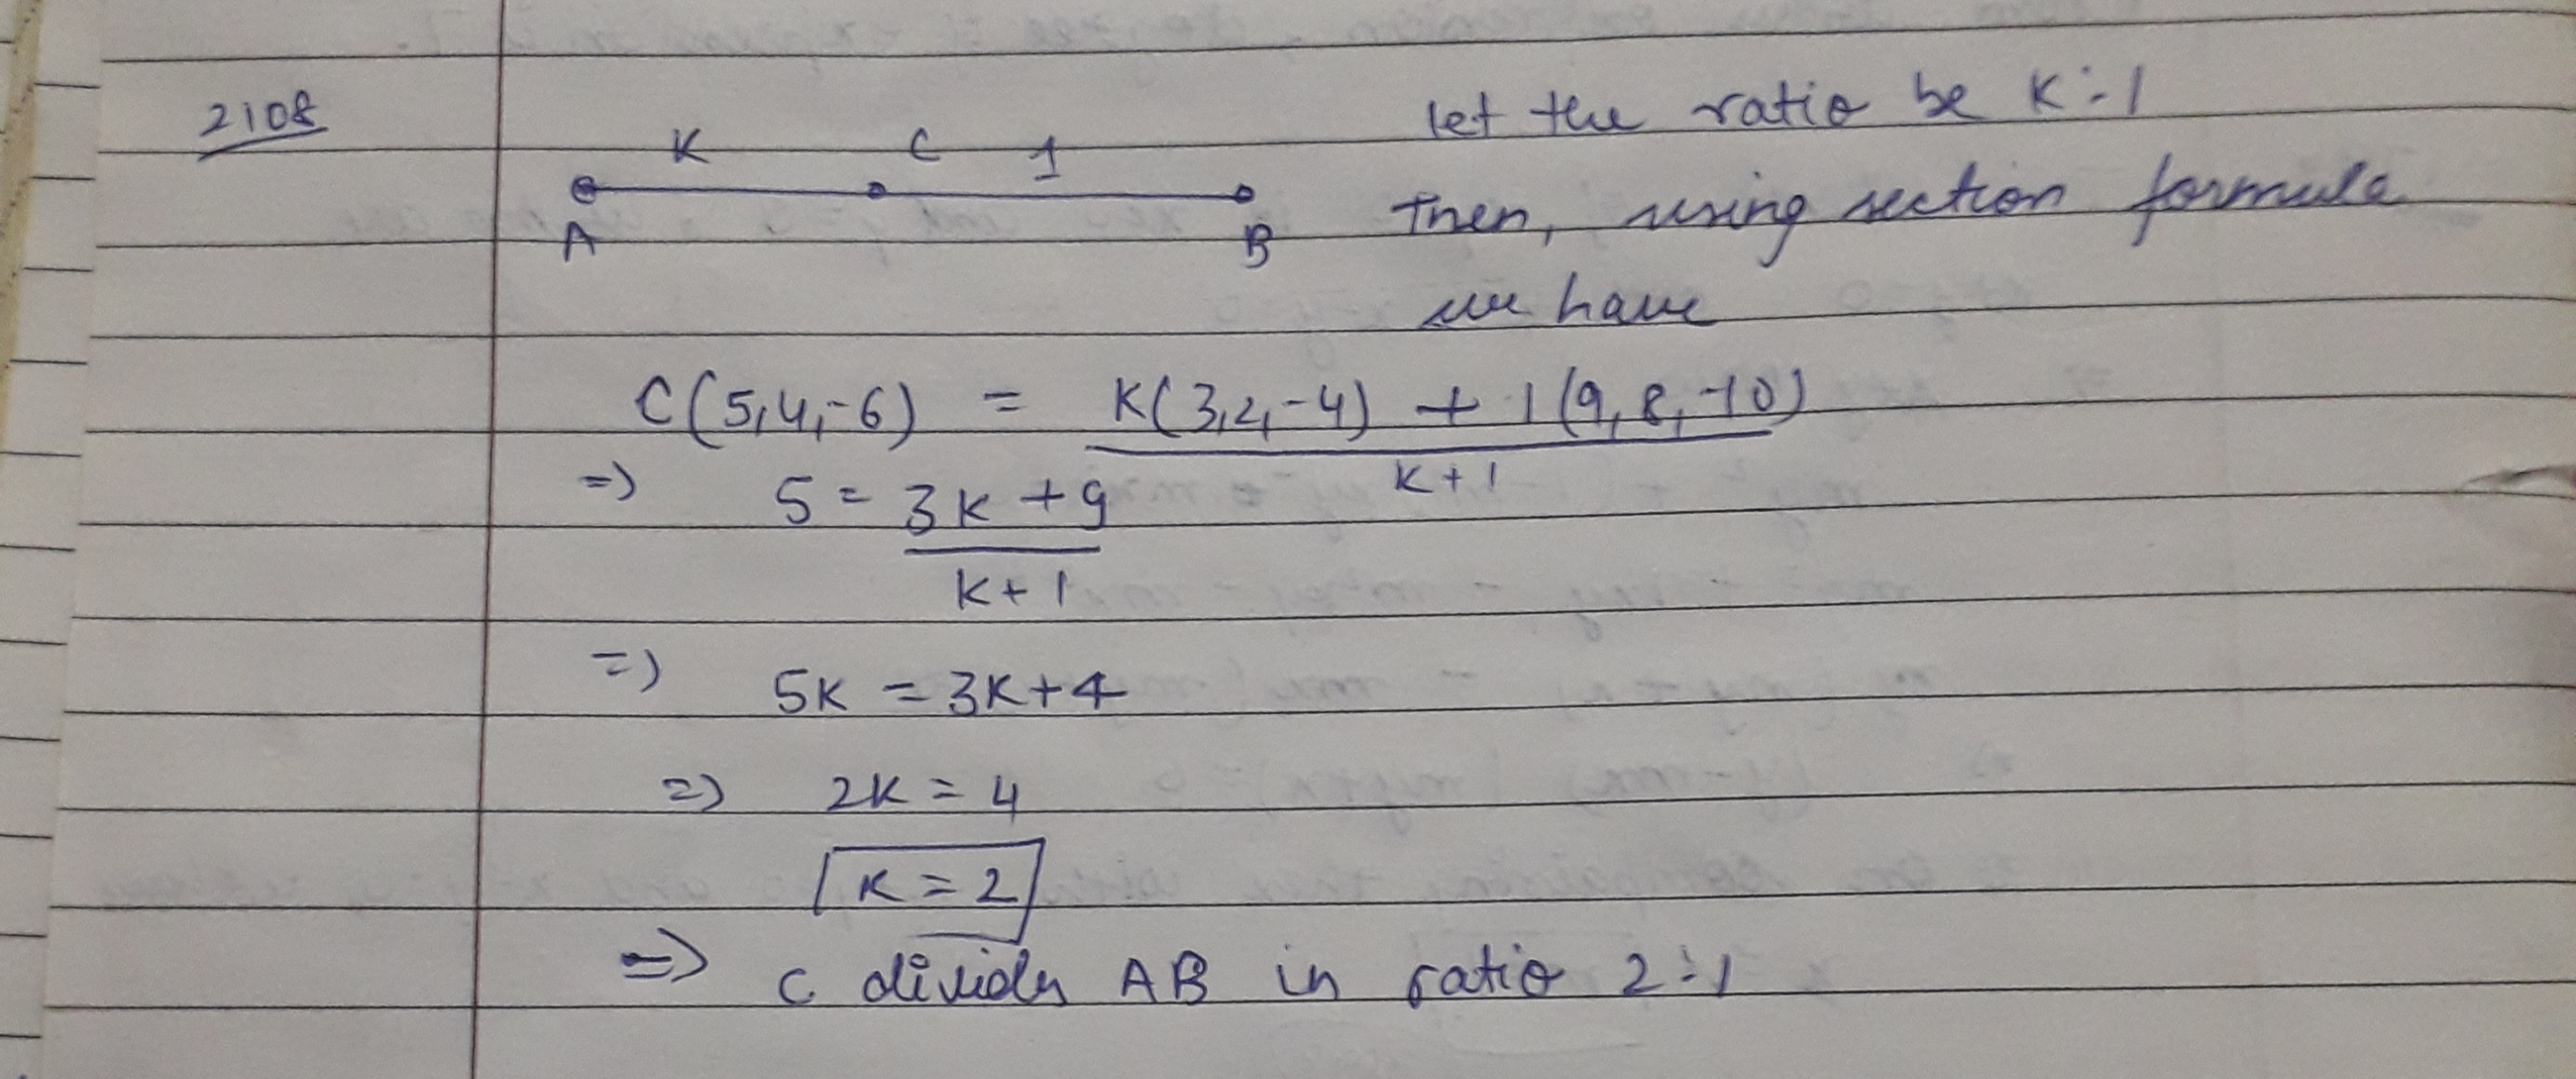 2108
let the ratio be K:1
K C 1
A B
Then, using section formula
we have
C(5,4,-6) = K(3,2,-4) + 1(9,8,-10)
K+1
=) 5 = 3K+9
K+1
=) 5K = 3K+4
=) 2K = 4
K = 2
=) C divides AB in ratio 2:1